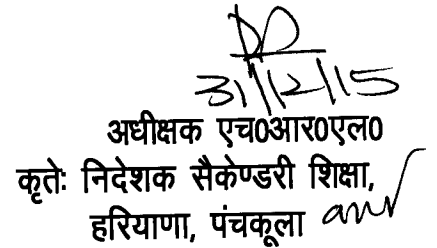 31/12/15
अधीक्षक एच0आर0एल0
कृतेः निदेशक सैकेण्डरी शिक्षा,
हरियाणा, पंचकूला